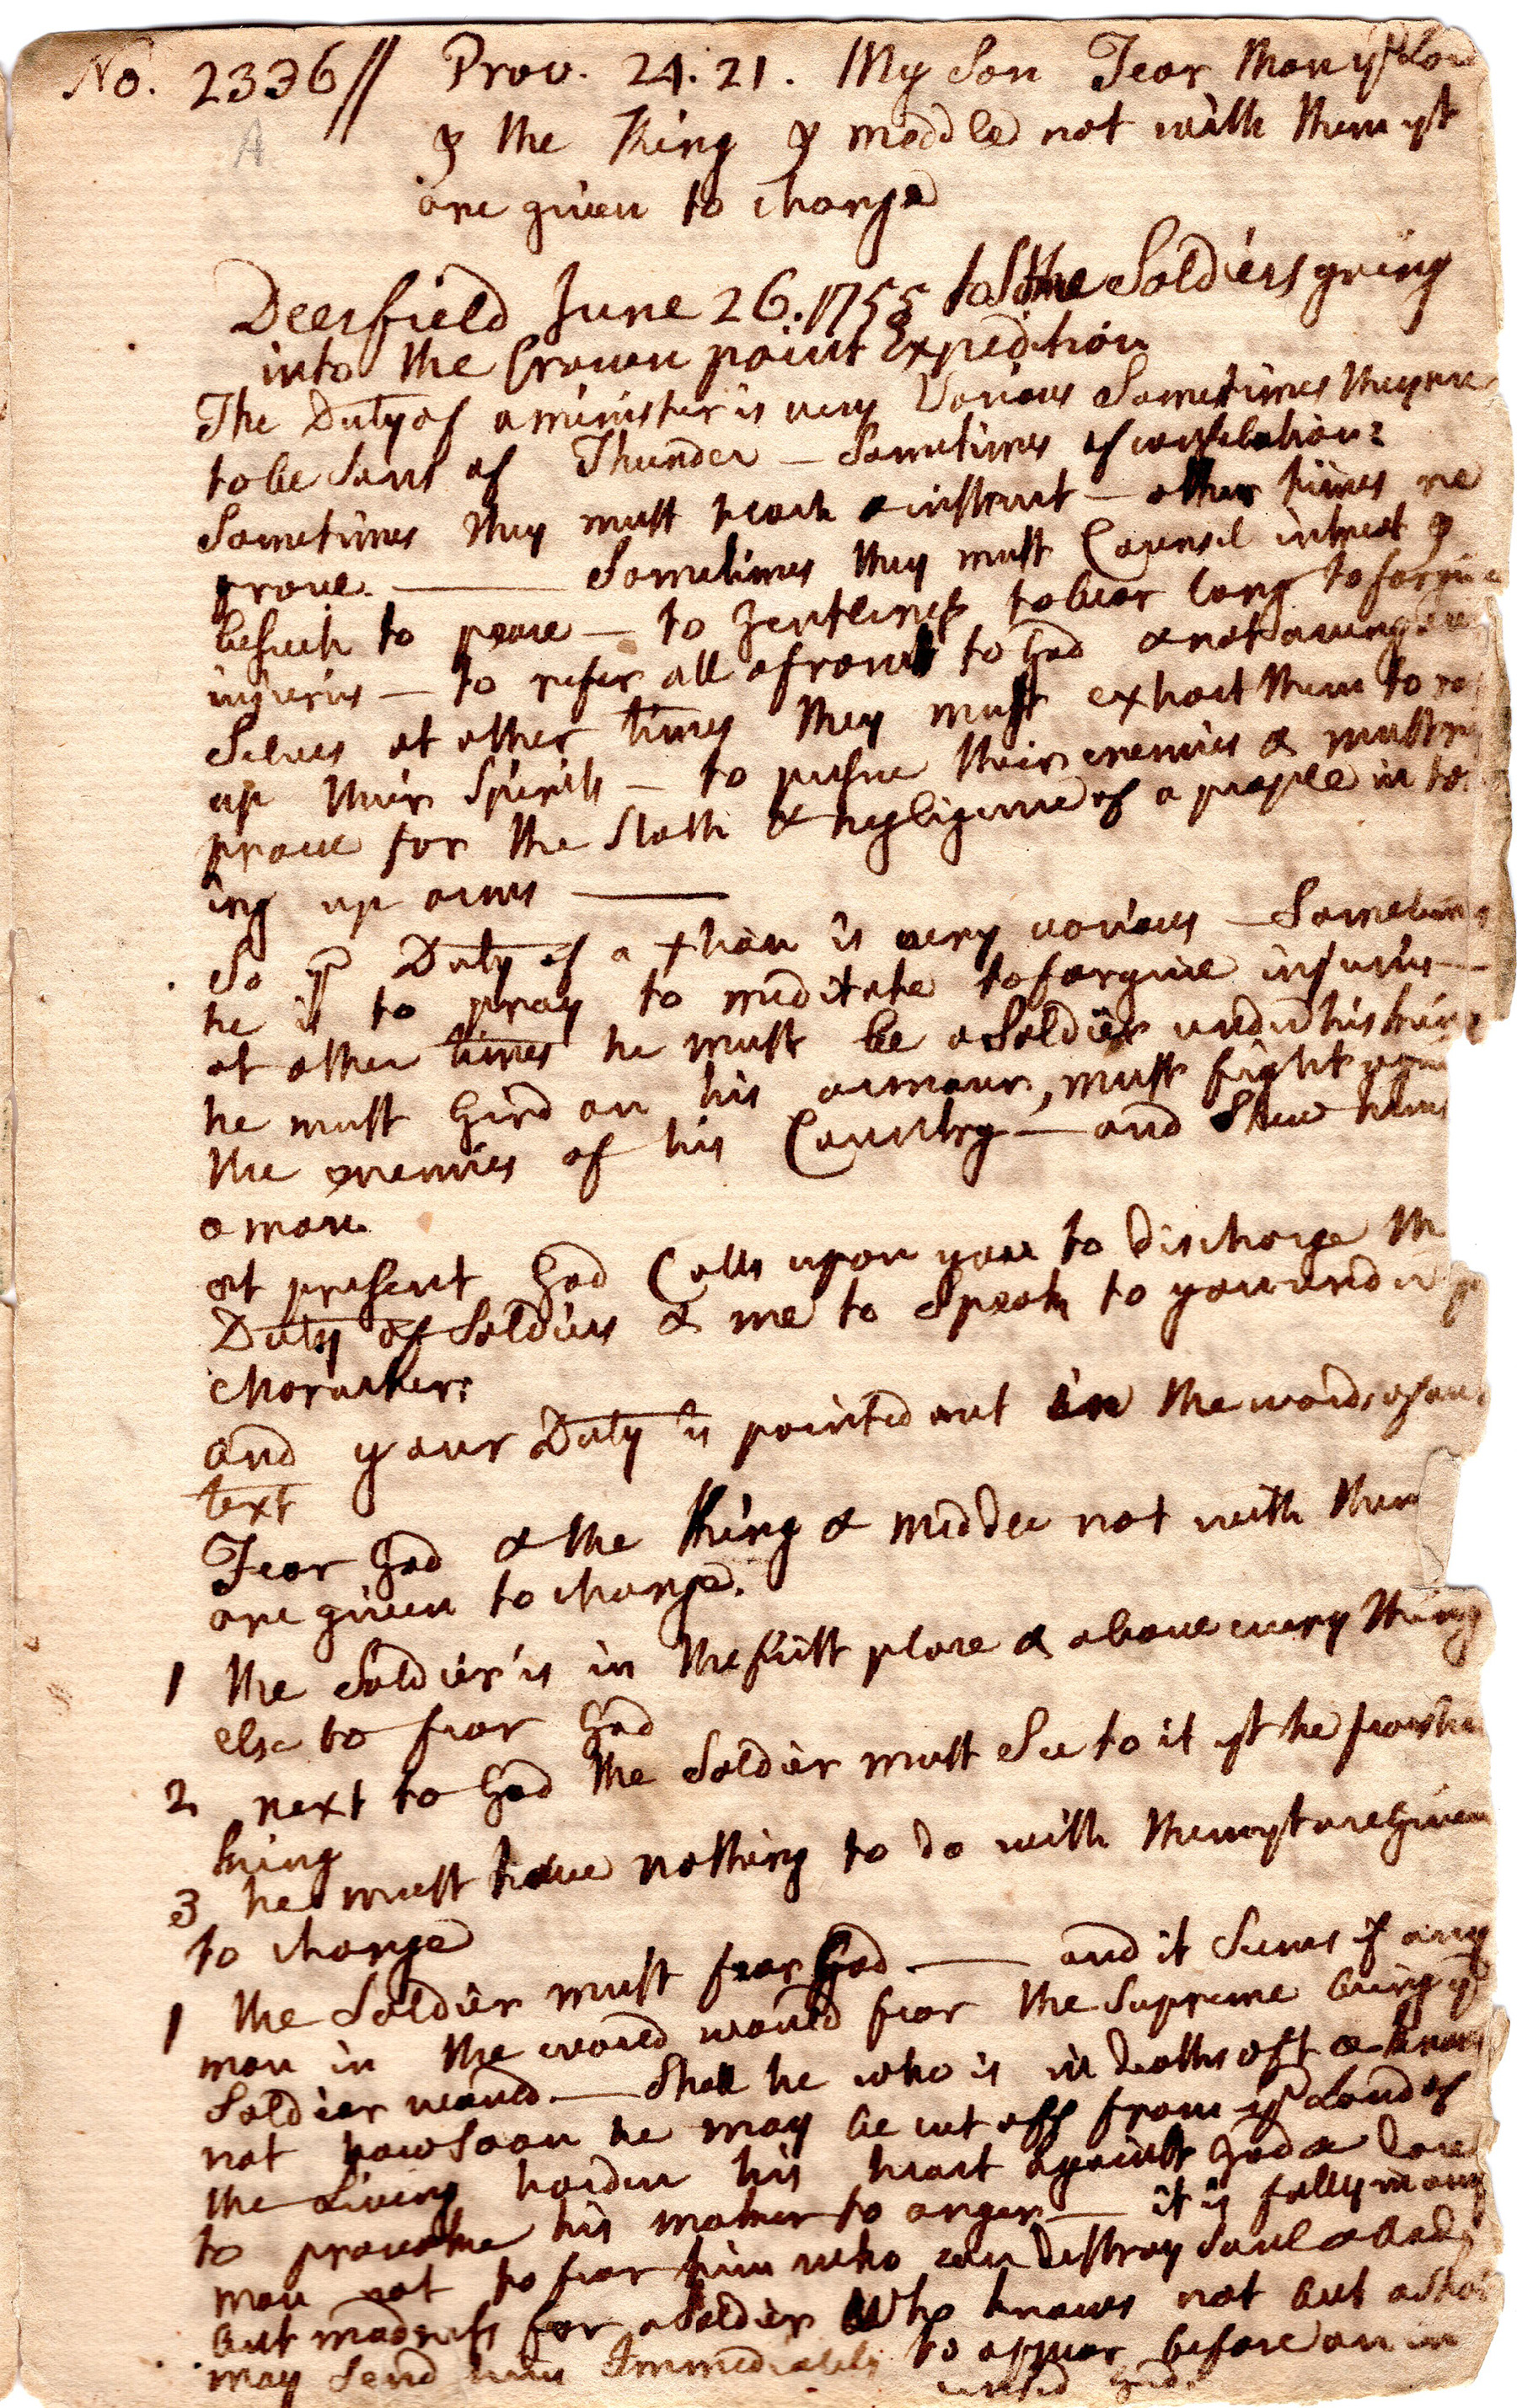 No. 2336 // Prov. 24. 21. My Son Fear thou ye Lord
& the King & meddle not with them yt
A
are given to change
Deerfield June 26. 1755 to Some Soldiers going
into the Crown point Expedition
The Duty of a minister is very Various Sometimes they are
to be Sons of Thunder — Sometimes of consolation:
Sometimes they must teach & instruct — other times re
prove. — Sometimes they must Councel intreat &
beseech to peace — to Gentleness to bear long to forgive
injuries — to refer all afronts to God & not avenge
Selves at other times they must exhort them to
up their Spirits — to pursue their enemies & must
prove for the Sloth & negligence of a people in
ing up arms —
So ye Duty of a Xtian is very various — Sometimes
he is to pray to meditate to forgive injuries —
at other times he must be a Soldier under his king
he must Gird on his armour, must fight
the enemies of his Country — and Shew
a man.
at present God Calls upon you to Discharge th
Duty of Soldiers & me to Speak to you under
character:
and your Duty is pointed out in the words of our
text
Fear God & the King & meddle not with them
are given to change.
1 the Soldier is in the first place & above every thing
else to fear God
2 next to God the Soldier must See to it yt he fears the
king
3 he must have nothing to do with them yt are Given
to change
1 the Soldier must fear God — and it Seems if any
man in the world would fear the Supreme being ye
Soldier would — Shall he who is in deaths oft & knows
not how Soon he may be cut off from ye Land of
the Living harden his heart against God & dare
to provoke his maker to anger — it is folly in any
man not to fear him who can destroy Soul & body
but madness for a Soldier Who knows not but a Shot
may Send him Immediately to appear before an in
censed God.